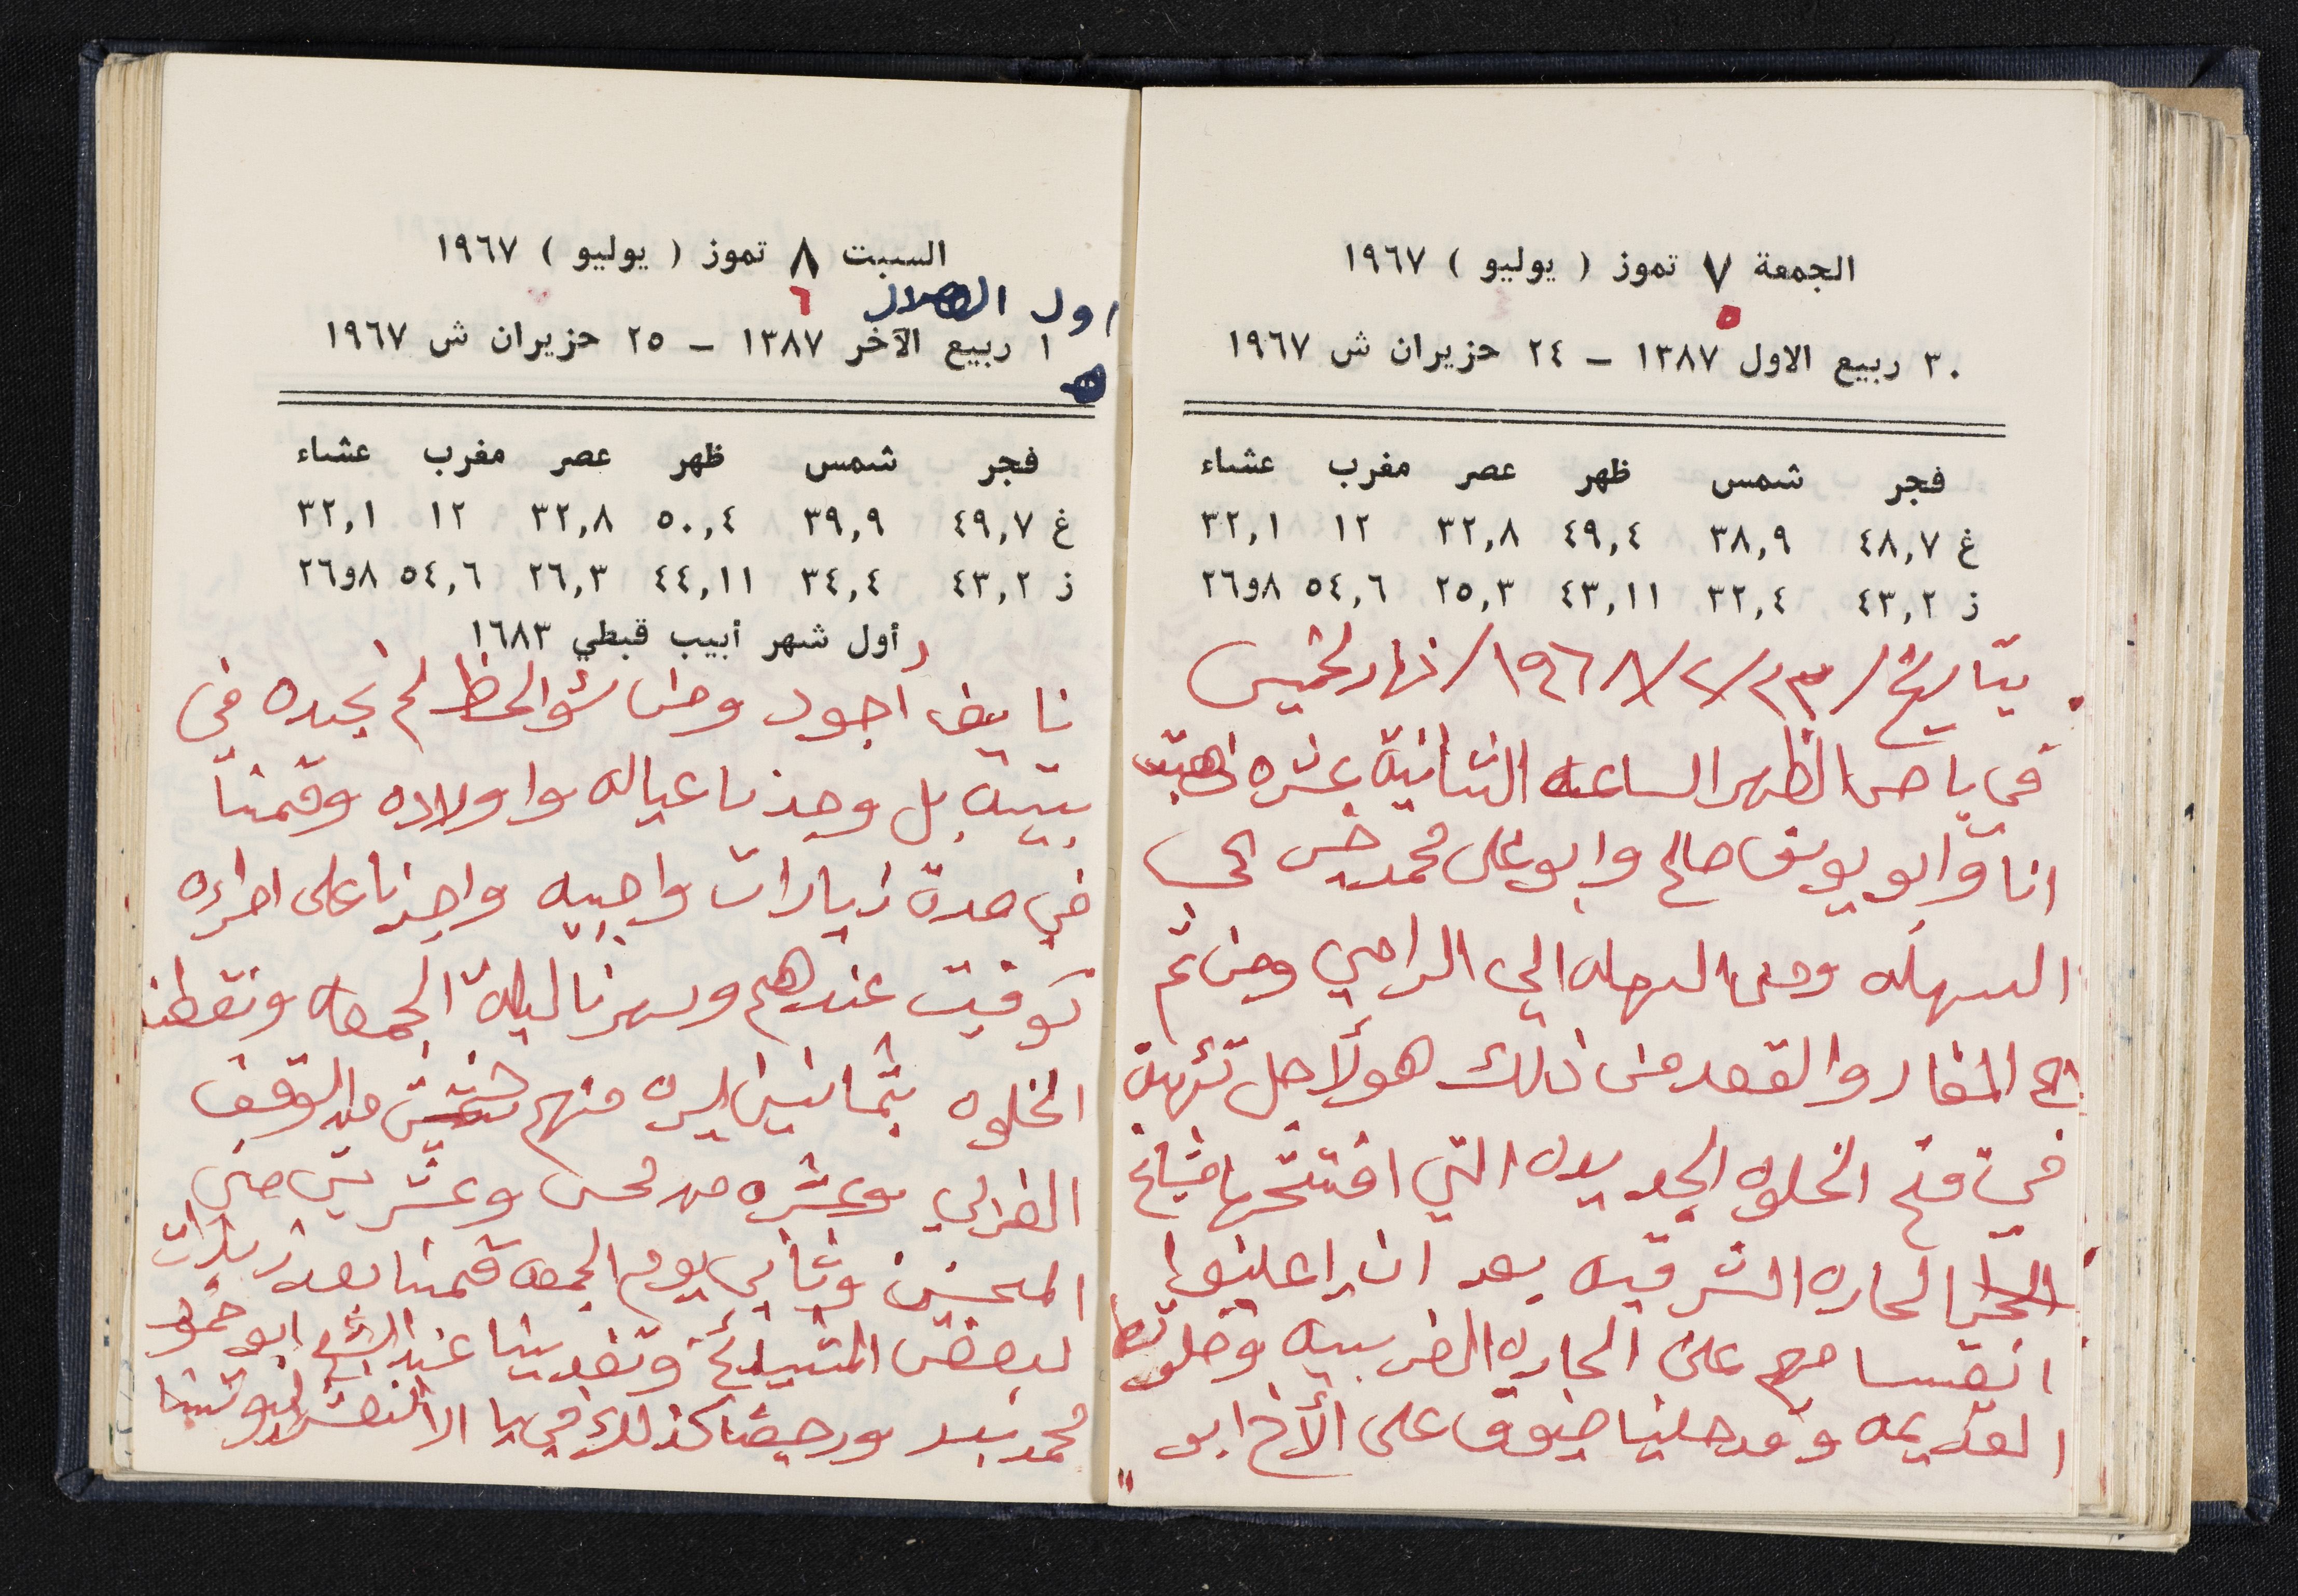 الجمعة ٧ تموز ( يوليو ) ١٩٦٧
٥
٣٠ ربيع الاول ١٣٨٧ – ٢٤ حزيران ش ١٩٦٧
فجر شمس ظهر عصر مغرب عشاء
غ ٤٨,٧ ٣٨,٩ ٤٩,٤ ٣٢,٨ ١٢ ٣٢,١
ز ٤٣,٢ ٣٢,٤ ٤٣,١١ ٢٥,٣ ٥٤,٦ ٨و٢٦
بتاريخ / ٢٣ / ٢ / ١٩٦٨ / نهار لخميس
في باص الظهر الساعه الثانية عشره ذهبت
انا وابو يوسف صالح وابو علي محمد الى
السهله ومن السهله الى الرامي ومن ثم
الى المغار والقصد من ذلك هو لأجل تهنئة
في فتح الخلوه الجديده التي افتتحها مشايخ
الحاره الشرقيه بعد ان اعلنوا
انقسامهم على الحاره الغربيه وخلوتها
القديمه وقد حلينا ضيوف على الأخ ابو
السبت ٨ تموز ( يوليو ) ١٩٦٧
اول الهلال ٦
١ ربيع الآخر ١٣٨٧ – ٢٥ حزيران ش ١٩٦٧
فجر شمس ظهر عصر مغرب عشاء
غ ٤٩,٧ ٣٩,٩ ٥٠,٤ ٣٢,٨ ١٢ ٣٢,١
ز ٤٣,٢ ٣٤,٤ ٤٤,١١ ٢٦,٣ ٥٤,٦ ٨و٢٦
أول شهر أبيب قبطي ١٦٨٣
نايف أجود ومن سؤ الحظ لم نجده في
بيته بل وجدنا عياله واولاده وقمنا
في عدة زيارات واجبيه واجبرنا على اجراءه
توقيت عندهم وسهرنا ليلة الجمعه ونقطنا
الخلوه بثمانين ليره منهم خمسين من الوقف
الغرابي وعشره من وعشرين من
المحسنين وثاني يوم الجمعه قمنا بعد زيارات
لبعض المشايخ وتغدينا عند الشيخ ابو حمود
محمد سعد ورجعنا كذلك في باص لبيوتنا